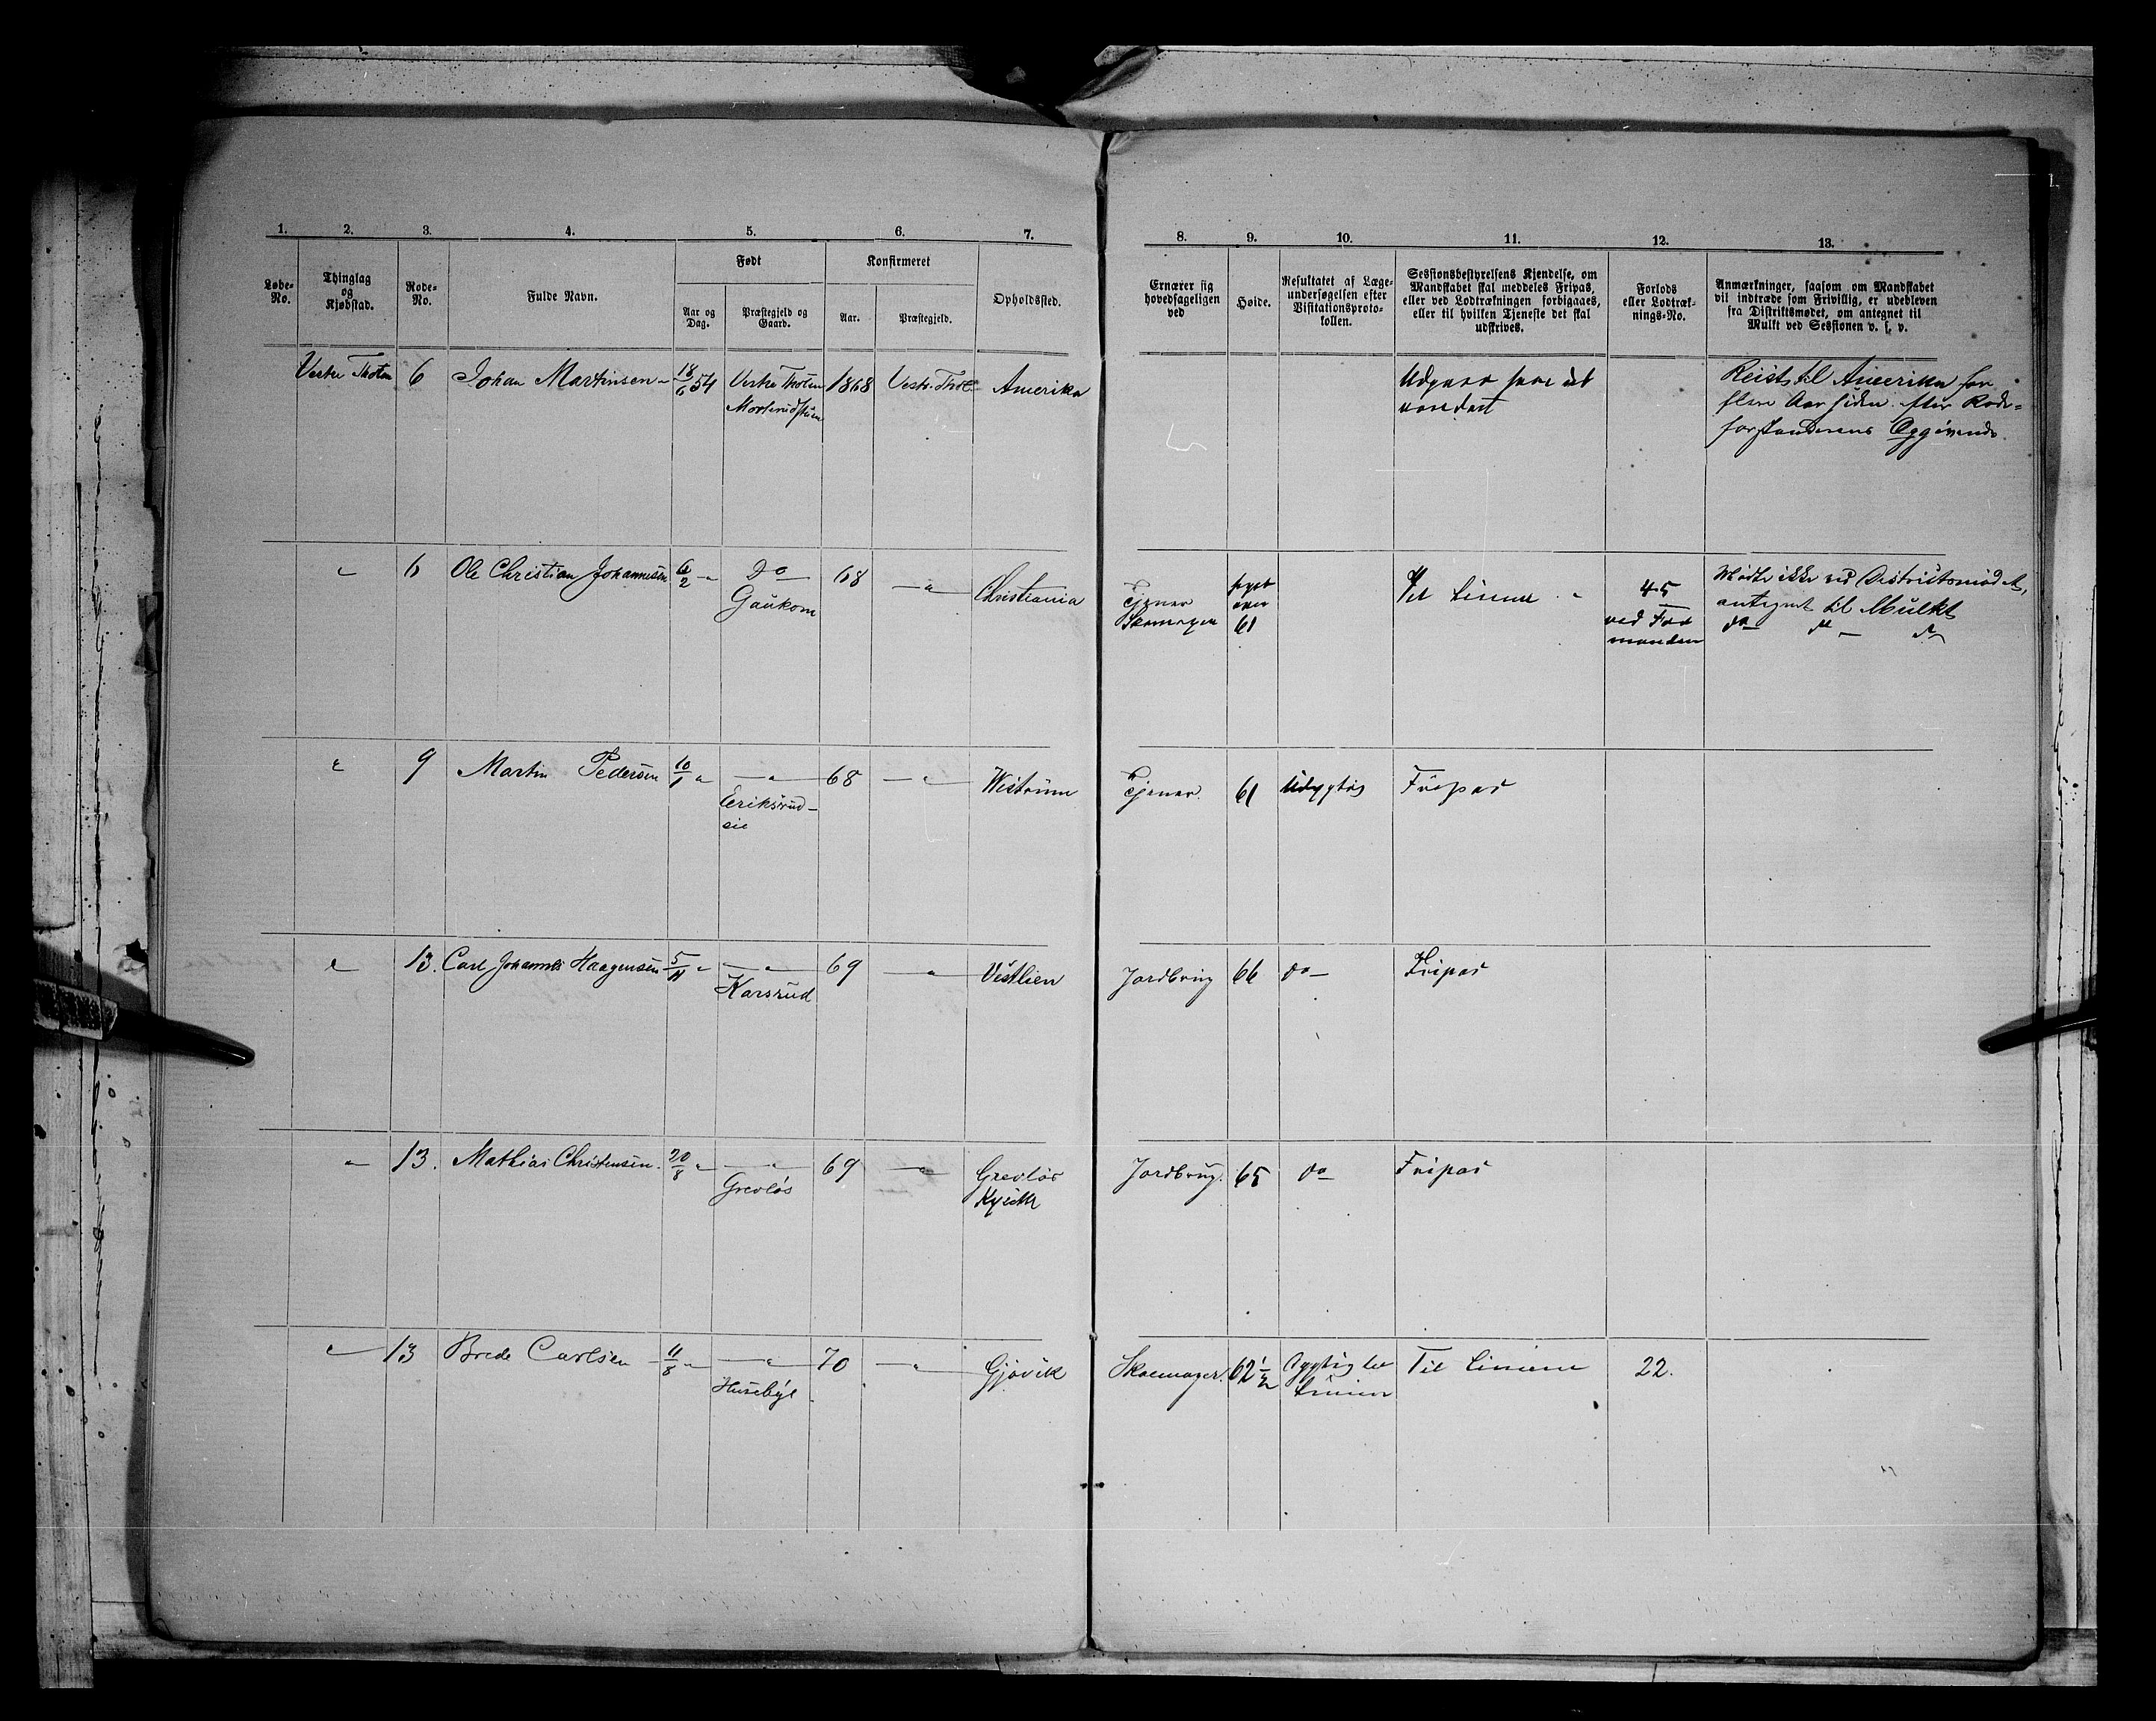 1. 2. 3. 4. 5. 6. 7. 8. 9. 10. 11. 12. 13.
Løbe-No. Thinglag og Kjøbstad. Rode-No. Fulde Navn. Født Konfirmeret Opholdssted.
Aar og Dag. Præstegjeld og Gaard. Aar. Præstegjeld.
Ernærer sig hovedsageligen ved
Høide.
Resultatet af Læge-undersøgelsen efter Visitationsproto-kollen.
Sessionsbestyrelsens Kjendelse, om Mandskabet skal meddeles Fripas, eller ved Lodtrækningen forbigaaes, eller til hvilken Tjeneste det skal udskrives.
Forlods eller Lodtræk-nings-No.
Anmærkninger, saasom om Mandskabet vil indtræde som Frivillig, er udebleven fra Distriktsmødet, om antegnet til Mulkt ved Sessionen v. s. v.
Vestre Thoten 6 Johan Martinsen 18/6 54 Vestre Thoten 1868 Vestr. Thot Amerika Udgaar som ud
vandret
Reist til Amerika for
flere Aar siden efter Rode-
forstanderens Opgivende.
" 6 Ole Christian Johannesen 6/2 " Do
Gaukom 68 " Christiania Tjener
Skomager 61 Til Linien 45
ved For
manden
Mødte ikke ved Distriktsmødet,
antegnet til Mulkt
do do do
" 9 Martin Pedersen 10/1 " "
Eriksrud-
eie 68 " Wistrum Tjener. 61 Udygtig Fripas
" 13. Carl Johannes Haagensen 5/11 " "
Karsrud 69 " Vestlien Jordbrug 66 do Fripas
" 13. Mathias Christensen. 20/8 " "
Grevløs 69 " Grevløs
Jordbrug. 65 do Fripas
" 13 Brede Carlsen 11/8 " "
Husebye 70 " Gjøvik Skomager. 62 1/2 Dygtig til
Linien Til Linien 22.